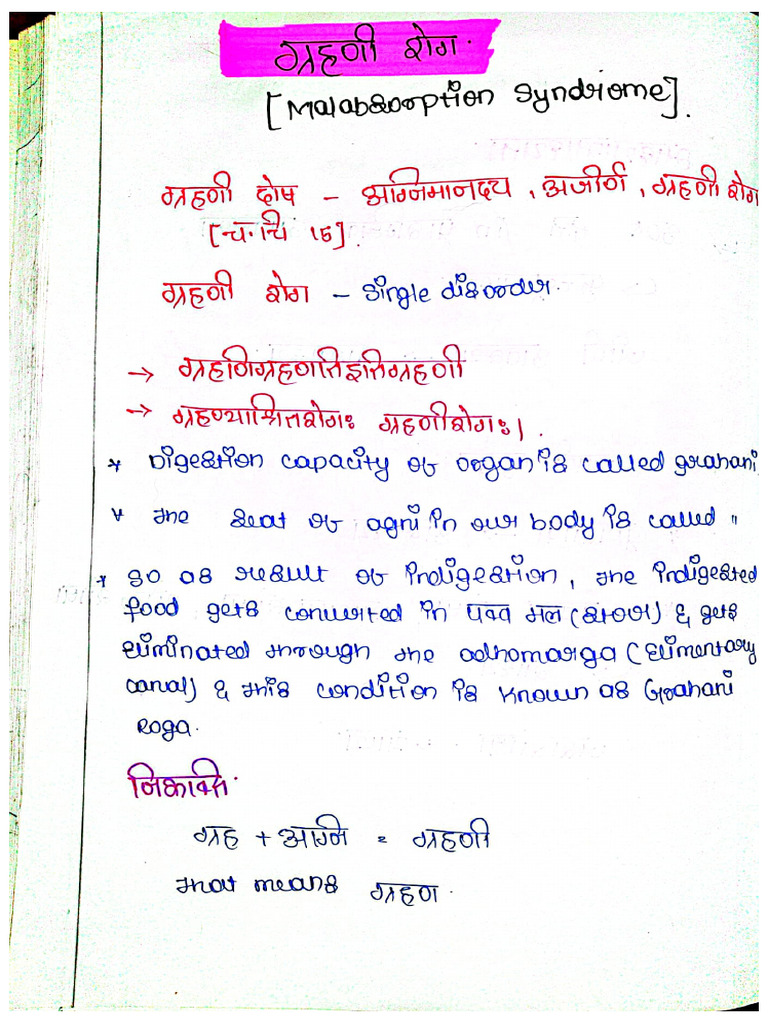 ग्रहणी रोग.
[Malabsorption Syndrome].
ग्रहणी दोष - अग्निमानदय, अजीर्ण, ग्रहणी रोग
[च.चि 15].
ग्रहणी रोग - single disorder.
→ ग्रहणिग्रहणातिइतिग्रहणी
→ ग्रहण्याश्रितरोगः ग्रहणीरोगः।.
* Digestion capacity of organ is called grahani
* The seat of agni in our body is called "
* So as result of indigestion, the indigested
food gets converted in पक्व मल (stool) & gets
eliminated through the adhomarga (Elimentary
canal) & this condition is known as Grahani
Roga.
ग्रह + अग्नि = ग्रहणी
That means ग्रहण.